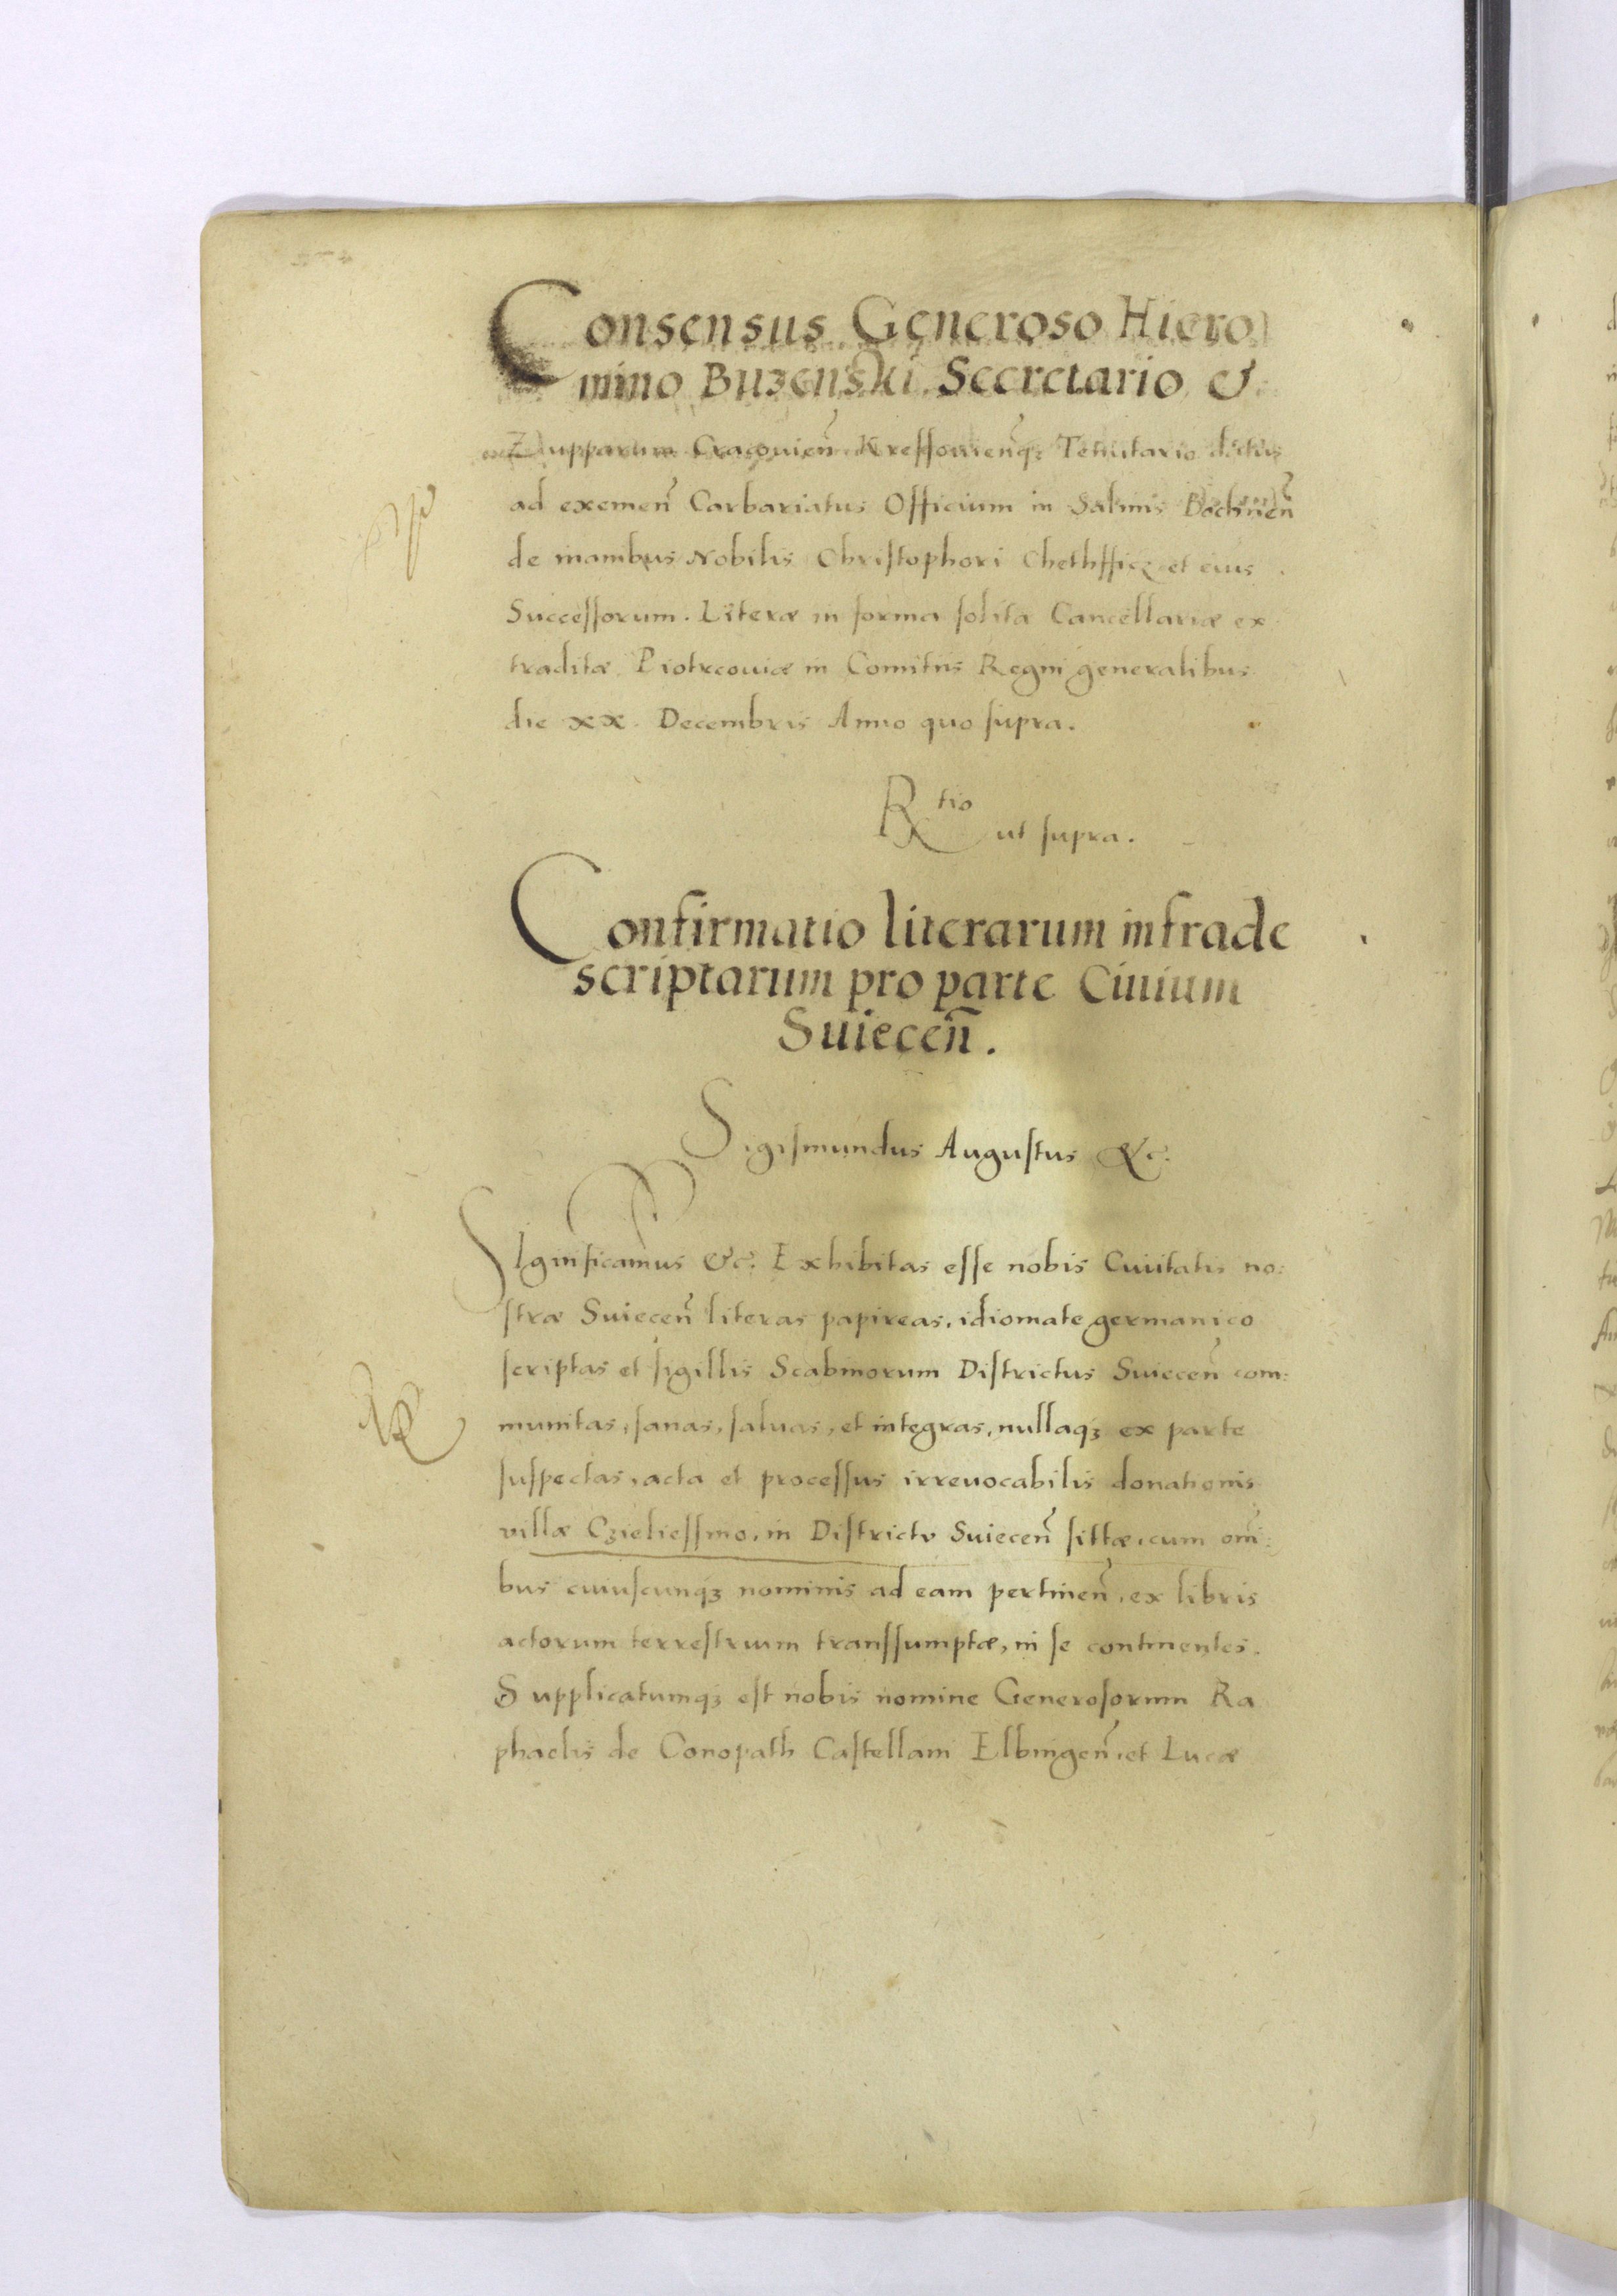 Consensus Generoso Hiero
mino Buzenski Secretario &
Zupparum Cracouien̄ Kressouienq; Tenutario datus
ad exemen̄ Carbariatus Officium in Salinis Bochnen̄
de manibus Nobilis Christophori Chethfficz et eius
Successorum. Literæ in forma solita Cancellariæ ex
traditæ Piotrcouiæ in Comitiis Regni generalibus
die xx. Decembris Anno quo supra.
Rtio ut supra.
Confirmatio literarum infrade
scriptarum pro parte Ciuium
Suiecen̄.
Sigismundus Augustus &c.
Significamus &c. Exhibitas esse nobis Ciuitatis no:
stræ Suiecen̄ literas papireas, idiomate germanico
scriptas et sigillis Scabinorum Districtus Suiecen̄ com:
munitas, sanas, saluas, et integras, nullaqꝫ ex parte
suspectas, acta et processus irreuocabilis donationis
villæ Czieliessino, in Districtu Suiecen̄ sittæ, cum om̄i:
bus cuiuscunqꝫ nominis ad eam pertinen̄, ex libris
actorum terrestrium transsumptæ, in se continentes.
Supplicatumqꝫ est nobis nomine Generosorum Ra
phaelis de Conopath Castellani Elbingen̄, et Lucæ